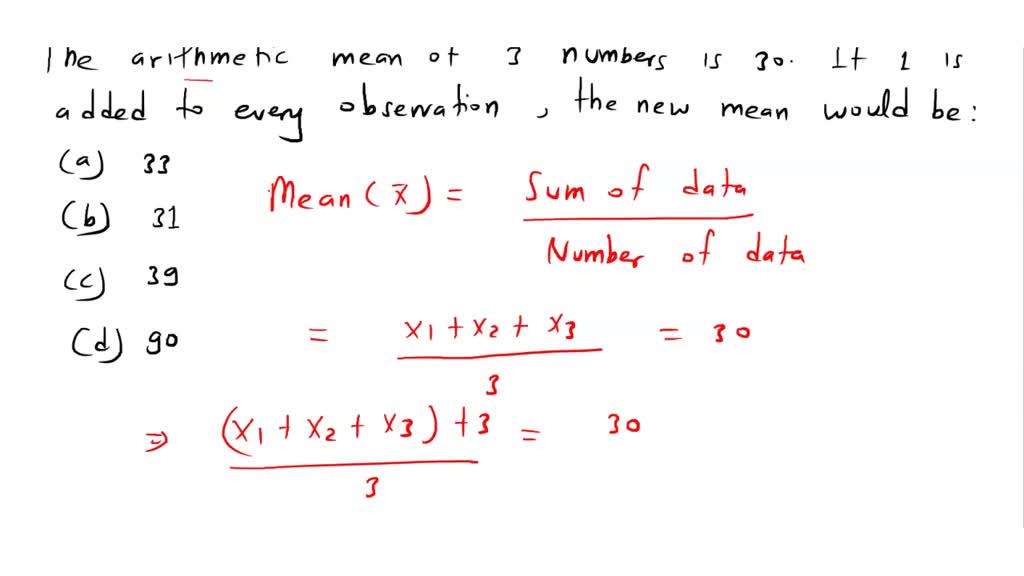 The arithmetic mean of 3 numbers is 30. If 1 is
added to every observation, the new mean would be:
(a) 33
(b) 31
(c) 39
(d) 90
Mean (x̄) = Sum of data / Number of data
= x1 + x2 + x3 / 3 = 30
⇒ (x1 + x2 + x3) + 3 / 3 = 30